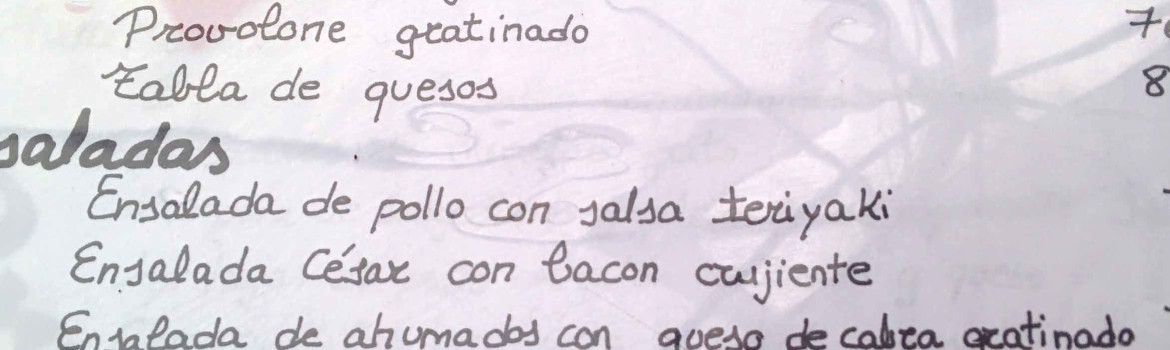 Provolone gratinado 7
Tabla de quesos 8
saladas
Ensalada de pollo con salsa teriyaki
Ensalada César con bacon crujiente
Ensalada de ahumados con queso de cabra gratinado